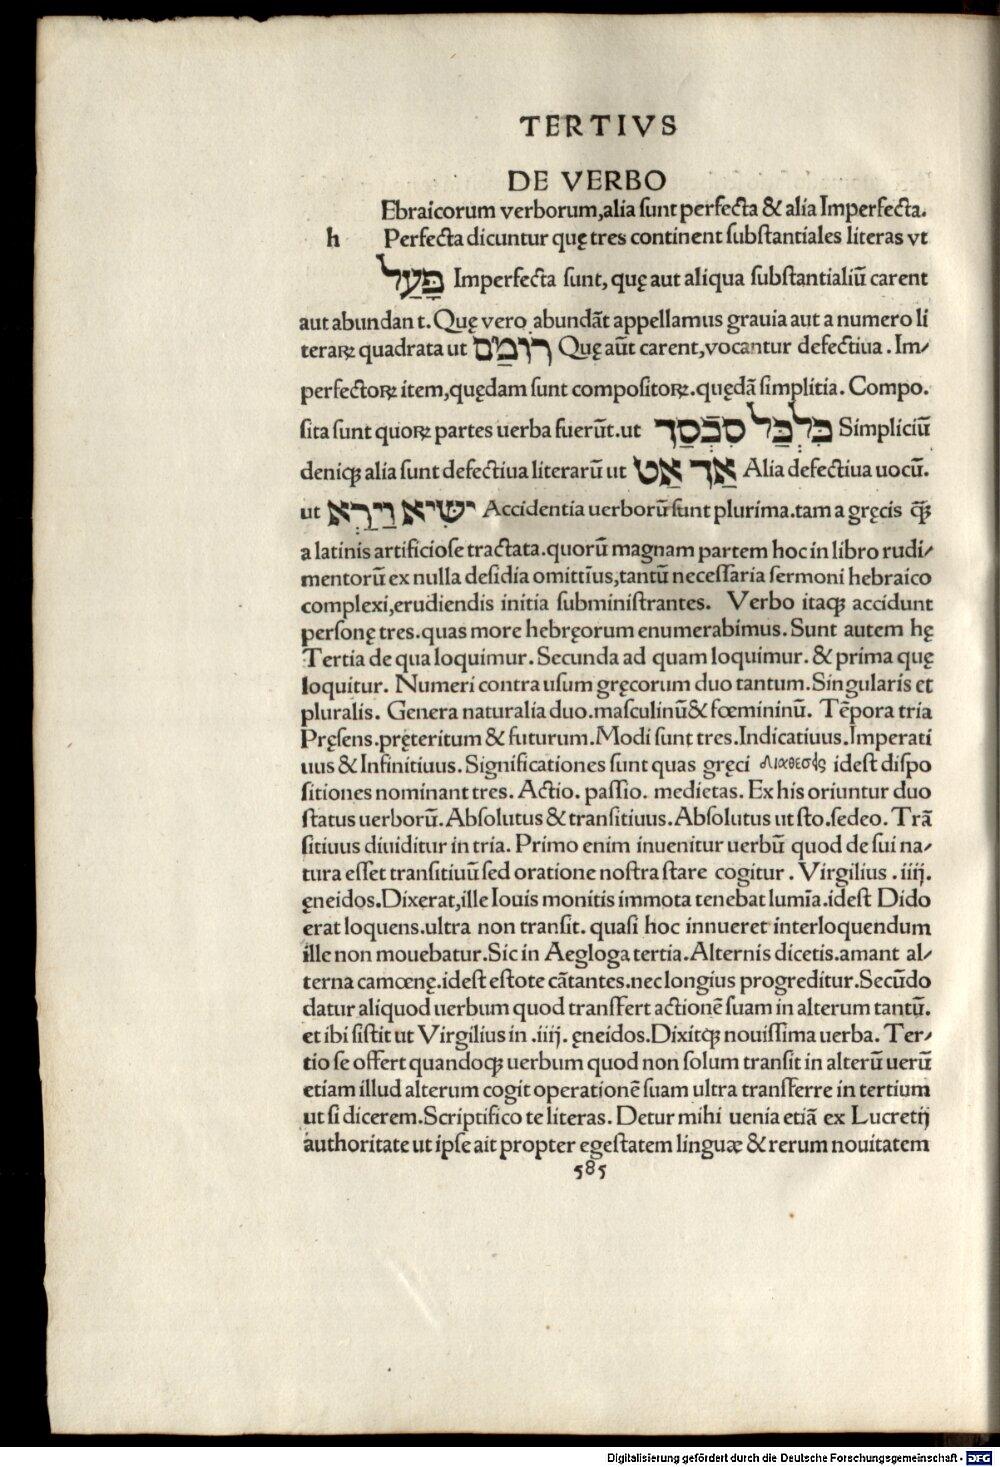 TERTIVS
DE VERBO
Ebraicorum verborum,alia sunt perfecta & alia Imperfecta.
h Perfecta dicuntur quę tres continent substantiales literas vt
פָּעַל Imperfecta sunt, quę aut aliqua substantialiū carent
aut abundan t. Quę vero abundāt appellamus grauia aut a numero li
teraꝝ quadrata ut רוֹמַם Quę aūt carent,vocantur defectiua. Im⸗
perfectoꝝ item,quędam sunt compositoꝝ.quędā simplitia. Compo.
sita sunt quoꝝ partes uerba fuerūt.ut כִּלְכַּל סִבְּסַךְ Simpliciū
deniqꝫ alia sunt defectiua literarū ut אַךְ אַט Alia defectiua uocū.
ut יִשִּׁיא וַיִּרְא Accidentia uerborū sunt plurima.tam a gręcis q̄ꝫ
a latinis artificiose tractata.quorū magnam partem hoc in libro rudi⸗
mentorū ex nulla desidia omittīus,tantū necessaria sermoni hebraico
complexi,erudiendis initia subministrantes. Verbo itaqꝫ accidunt
personę tres.quas more hebręorum enumerabimus. Sunt autem hę
Tertia de qua loquimur. Secunda ad quam loquimur. & prima quę
loquitur. Numeri contra usum gręcorum duo tantum. Singularis et
pluralis. Genera naturalia duo.masculinū & fœmininū. Tēpora tria
Pręsens.pręteritum & futurum. Modi sunt tres. Indicatiuus. Imperati
uus & Infinitiuus. Significationes sunt quas gręci διαθεσεις idest dispo
sitiones nominant tres. Actio. passio. medietas. Ex his oriuntur duo
status uerborū. Absolutus & transitiuus. Absolutus ut sto.sedeo. Trā
sitiuus diuiditur in tria. Primo enim inuenitur uerbū quod de sui na⸗
tura esset transitiuū sed oratione nostra stare cogitur. Virgilius .iiij.
ęneidos. Dixerat,ille Iouis monitis immota tenebat lumīa.idest Dido
erat loquens.ultra non transit. quasi hoc innueret interloquendum
ille non mouebatur. Sic in Aegloga tertia. Alternis dicetis.amant al⸗
terna camœnę.idest estote cātantes.nec longius progreditur. Secūdo
datur aliquod uerbum quod transfert actionē suam in alterum tantū.
et ibi sistit ut Virgilius in .iiij. ęneidos. Dixitqꝫ nouissima uerba. Ter⸗
tio se offert quandoqꝫ uerbum quod non solum transit in alterū uerū
etiam illud alterum cogit operationē suam ultra transferre in tertium
ut si dicerem. Scriptifico te literas. Detur mihi uenia etiā ex Lucretij
authoritate ut ipse ait propter egestatem linguæ & rerum nouitatem
585
Digitalisierung gefördert durch die Deutsche Forschungsgemeinschaft - DFG